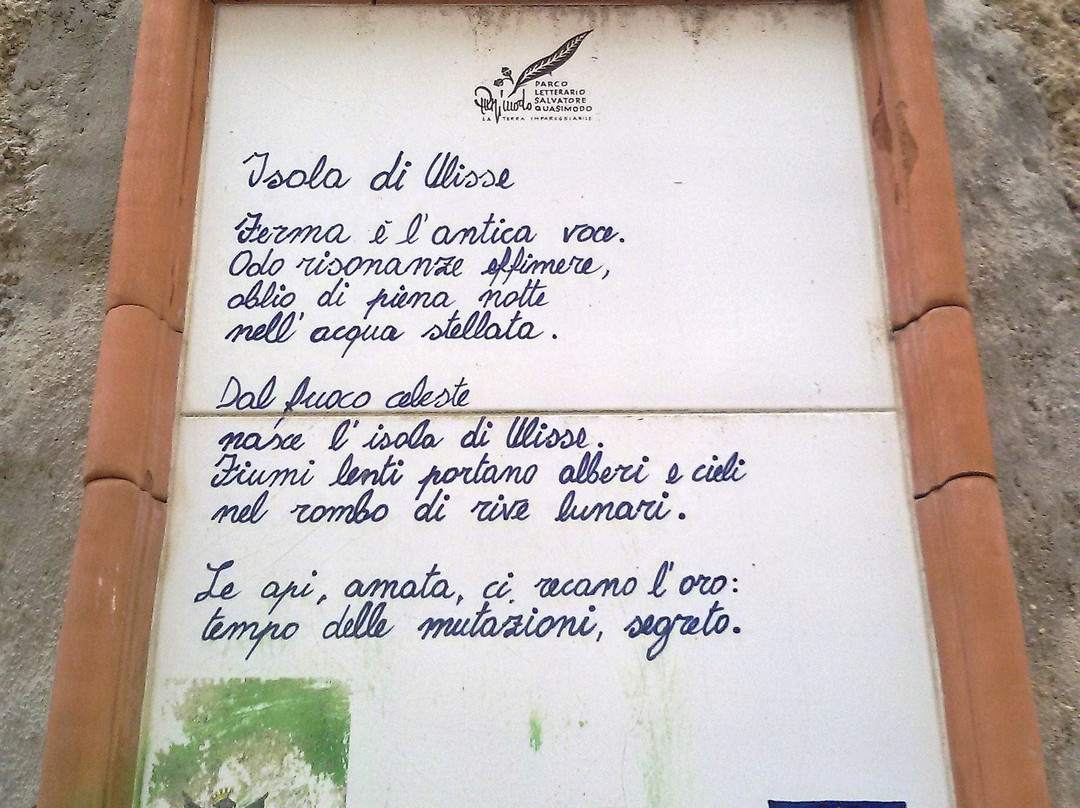 PARCO
LETTERARIO
SALVATORE
QUASIMODO
LA TERRA IMPAREGGIABILE
Isola di Ulisse
Ferma è l'antica voce.
Odo risonanze effimere,
oblio di piena notte
nell'acqua stellata.
Dal fuoco celeste
nasce l'isola di Ulisse.
Fiumi lenti portano alberi e cieli
nel rombo di rive lunari.
Le api, amata, ci recano l'oro:
tempo delle mutazioni, segreto.